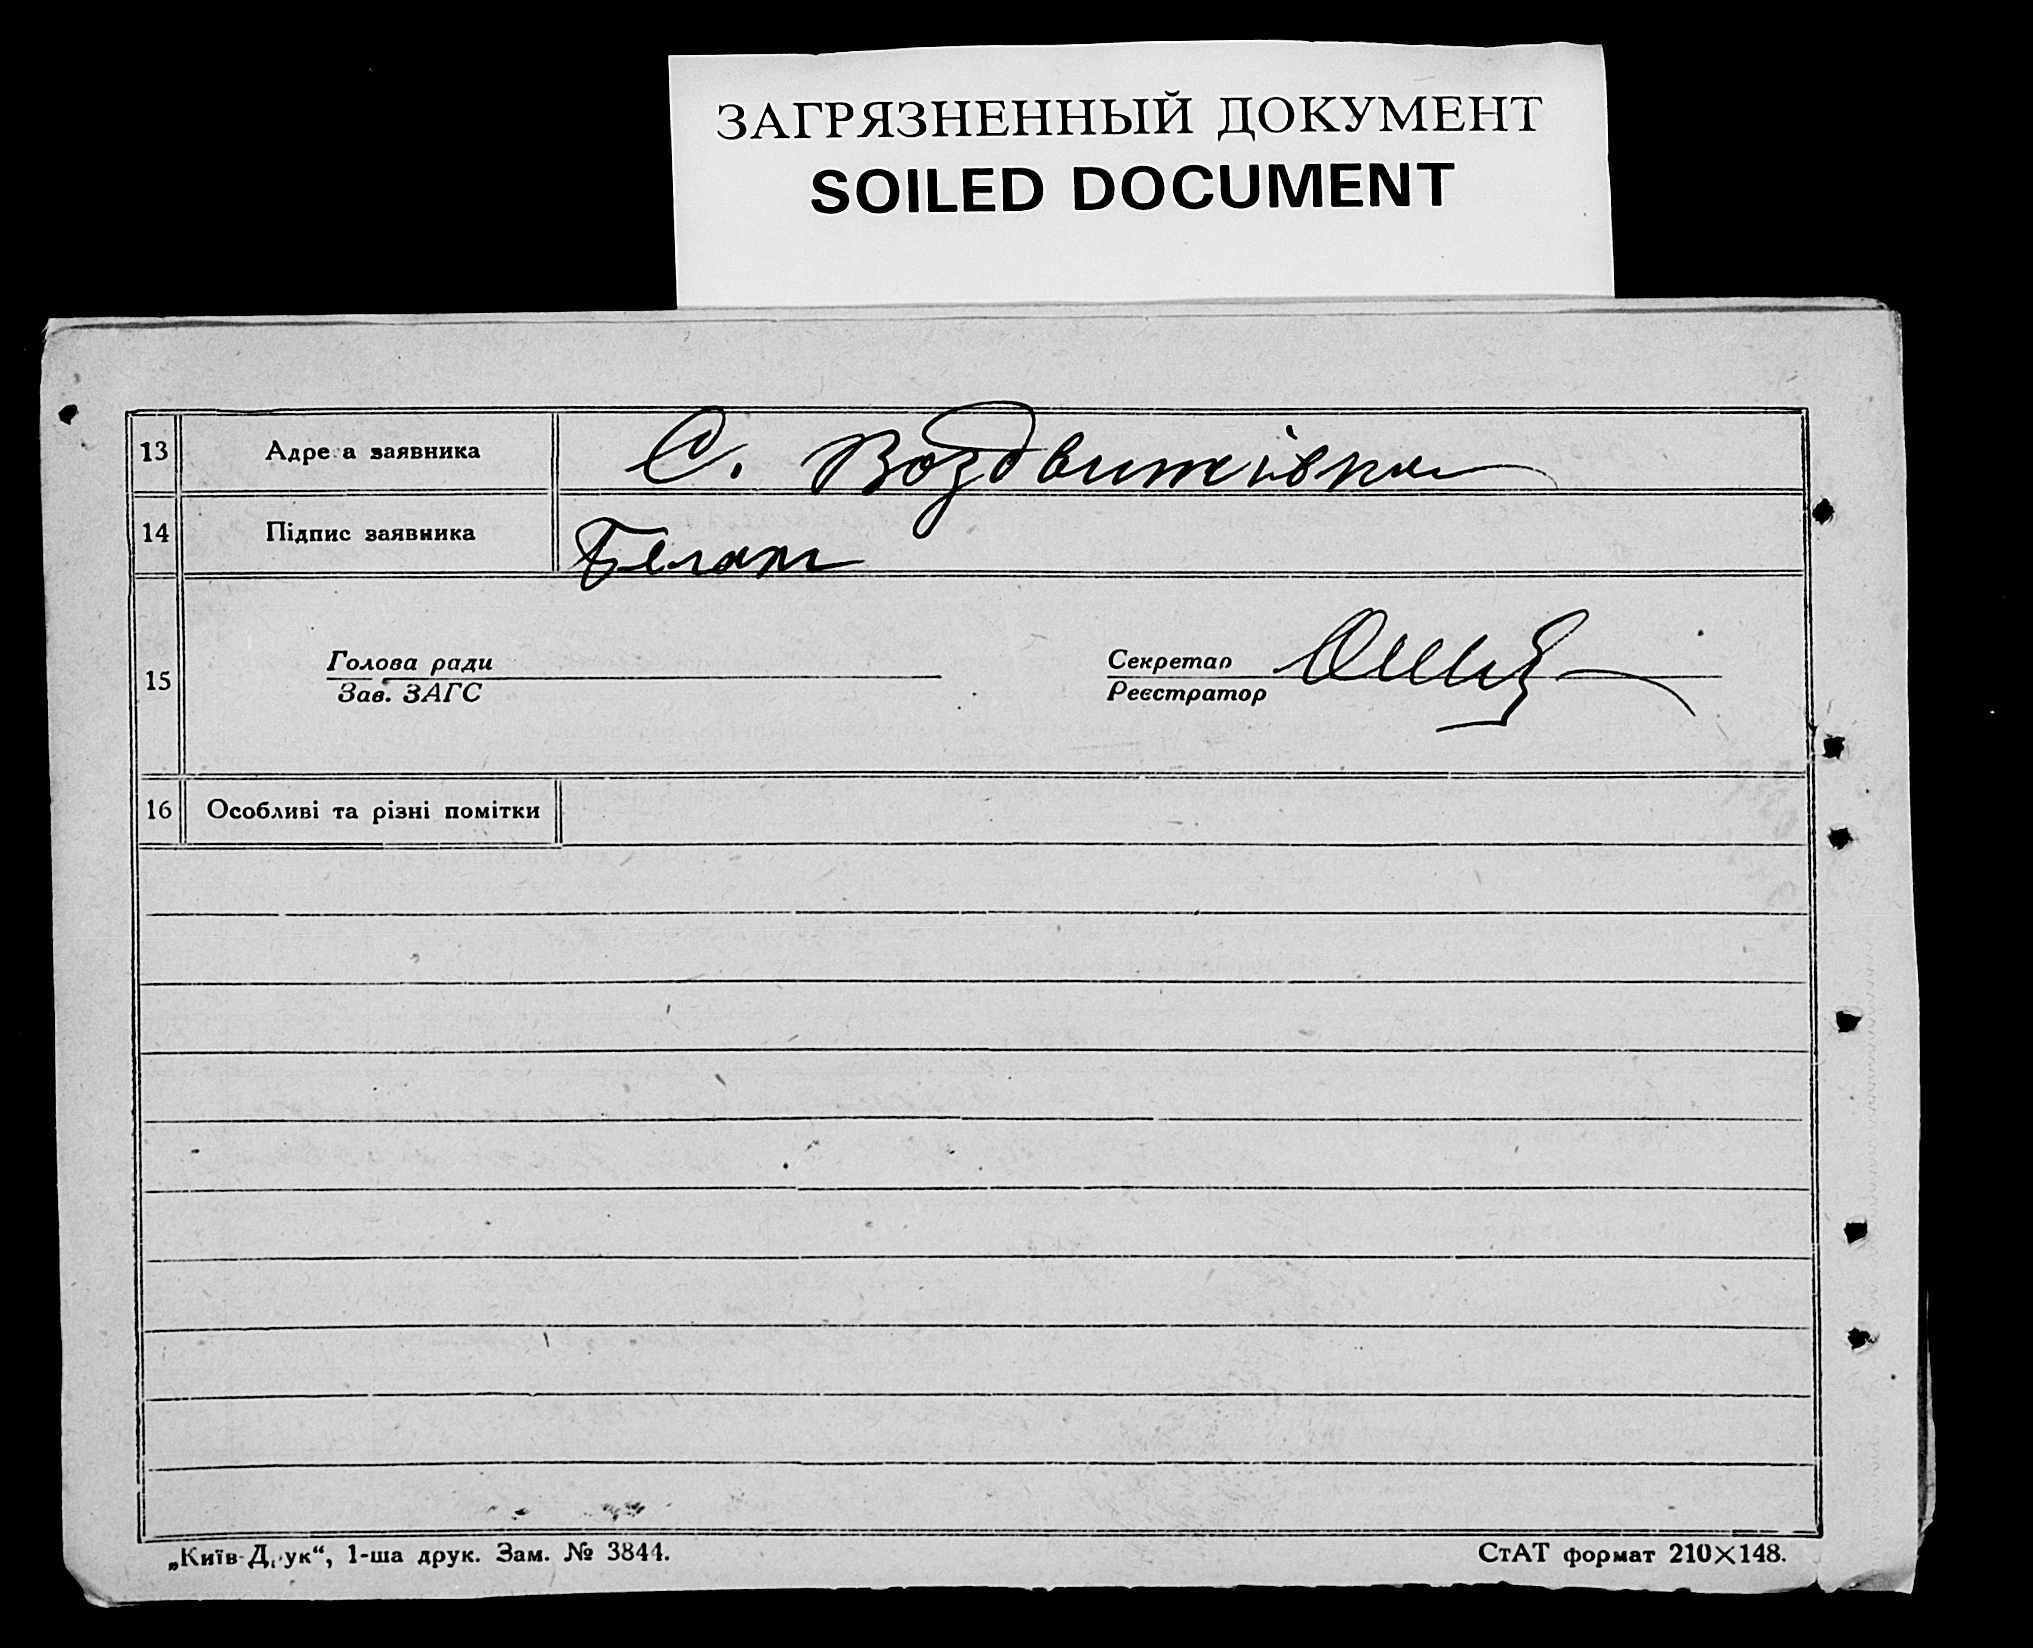 ЗАГРЯЗНЕННЫЙ ДОКУМЕНТ
SOILED DOCUMENT
13 Адреса заявника С. Воздвижівка
14 Підпис заявника
15 Голова ради Секретар
Зав. ЗАГС Реєстратор
16 Особливі та різні помітки
„Київ-Друк“, 1-ша друк. Зам. № 3844. СтАТ формат 210×148.